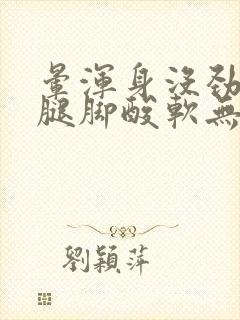 暈渾身沒勁
腿脚酸軟無
劉穎萍